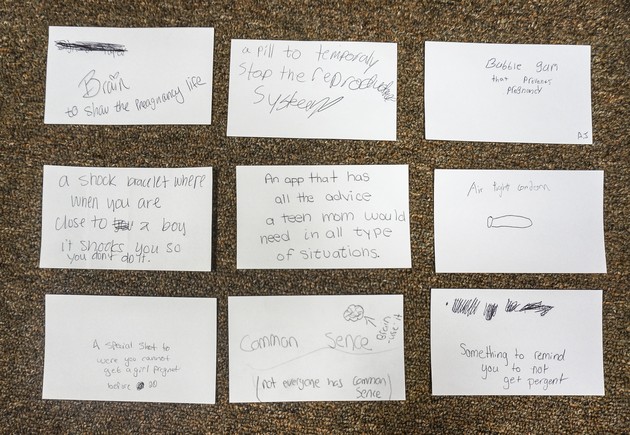 Brain
to show the Preagnancy life
a pill to temporaly
stop the reproductive
System
Bubble gum
that Prevents
pregnancy
A.J
a shock bracelet where
when you are
close to a boy
it shocks you so
you don't do it.
An app that has
all the advice
a teen mom would
need in all type
of situations.
Air tight condom
A special shot to
were you cannot
get a girl prignet
before 20
Common Sence
Brain
use it
(not everyone has common
Sence)
Something to remind
you to not
get pergent